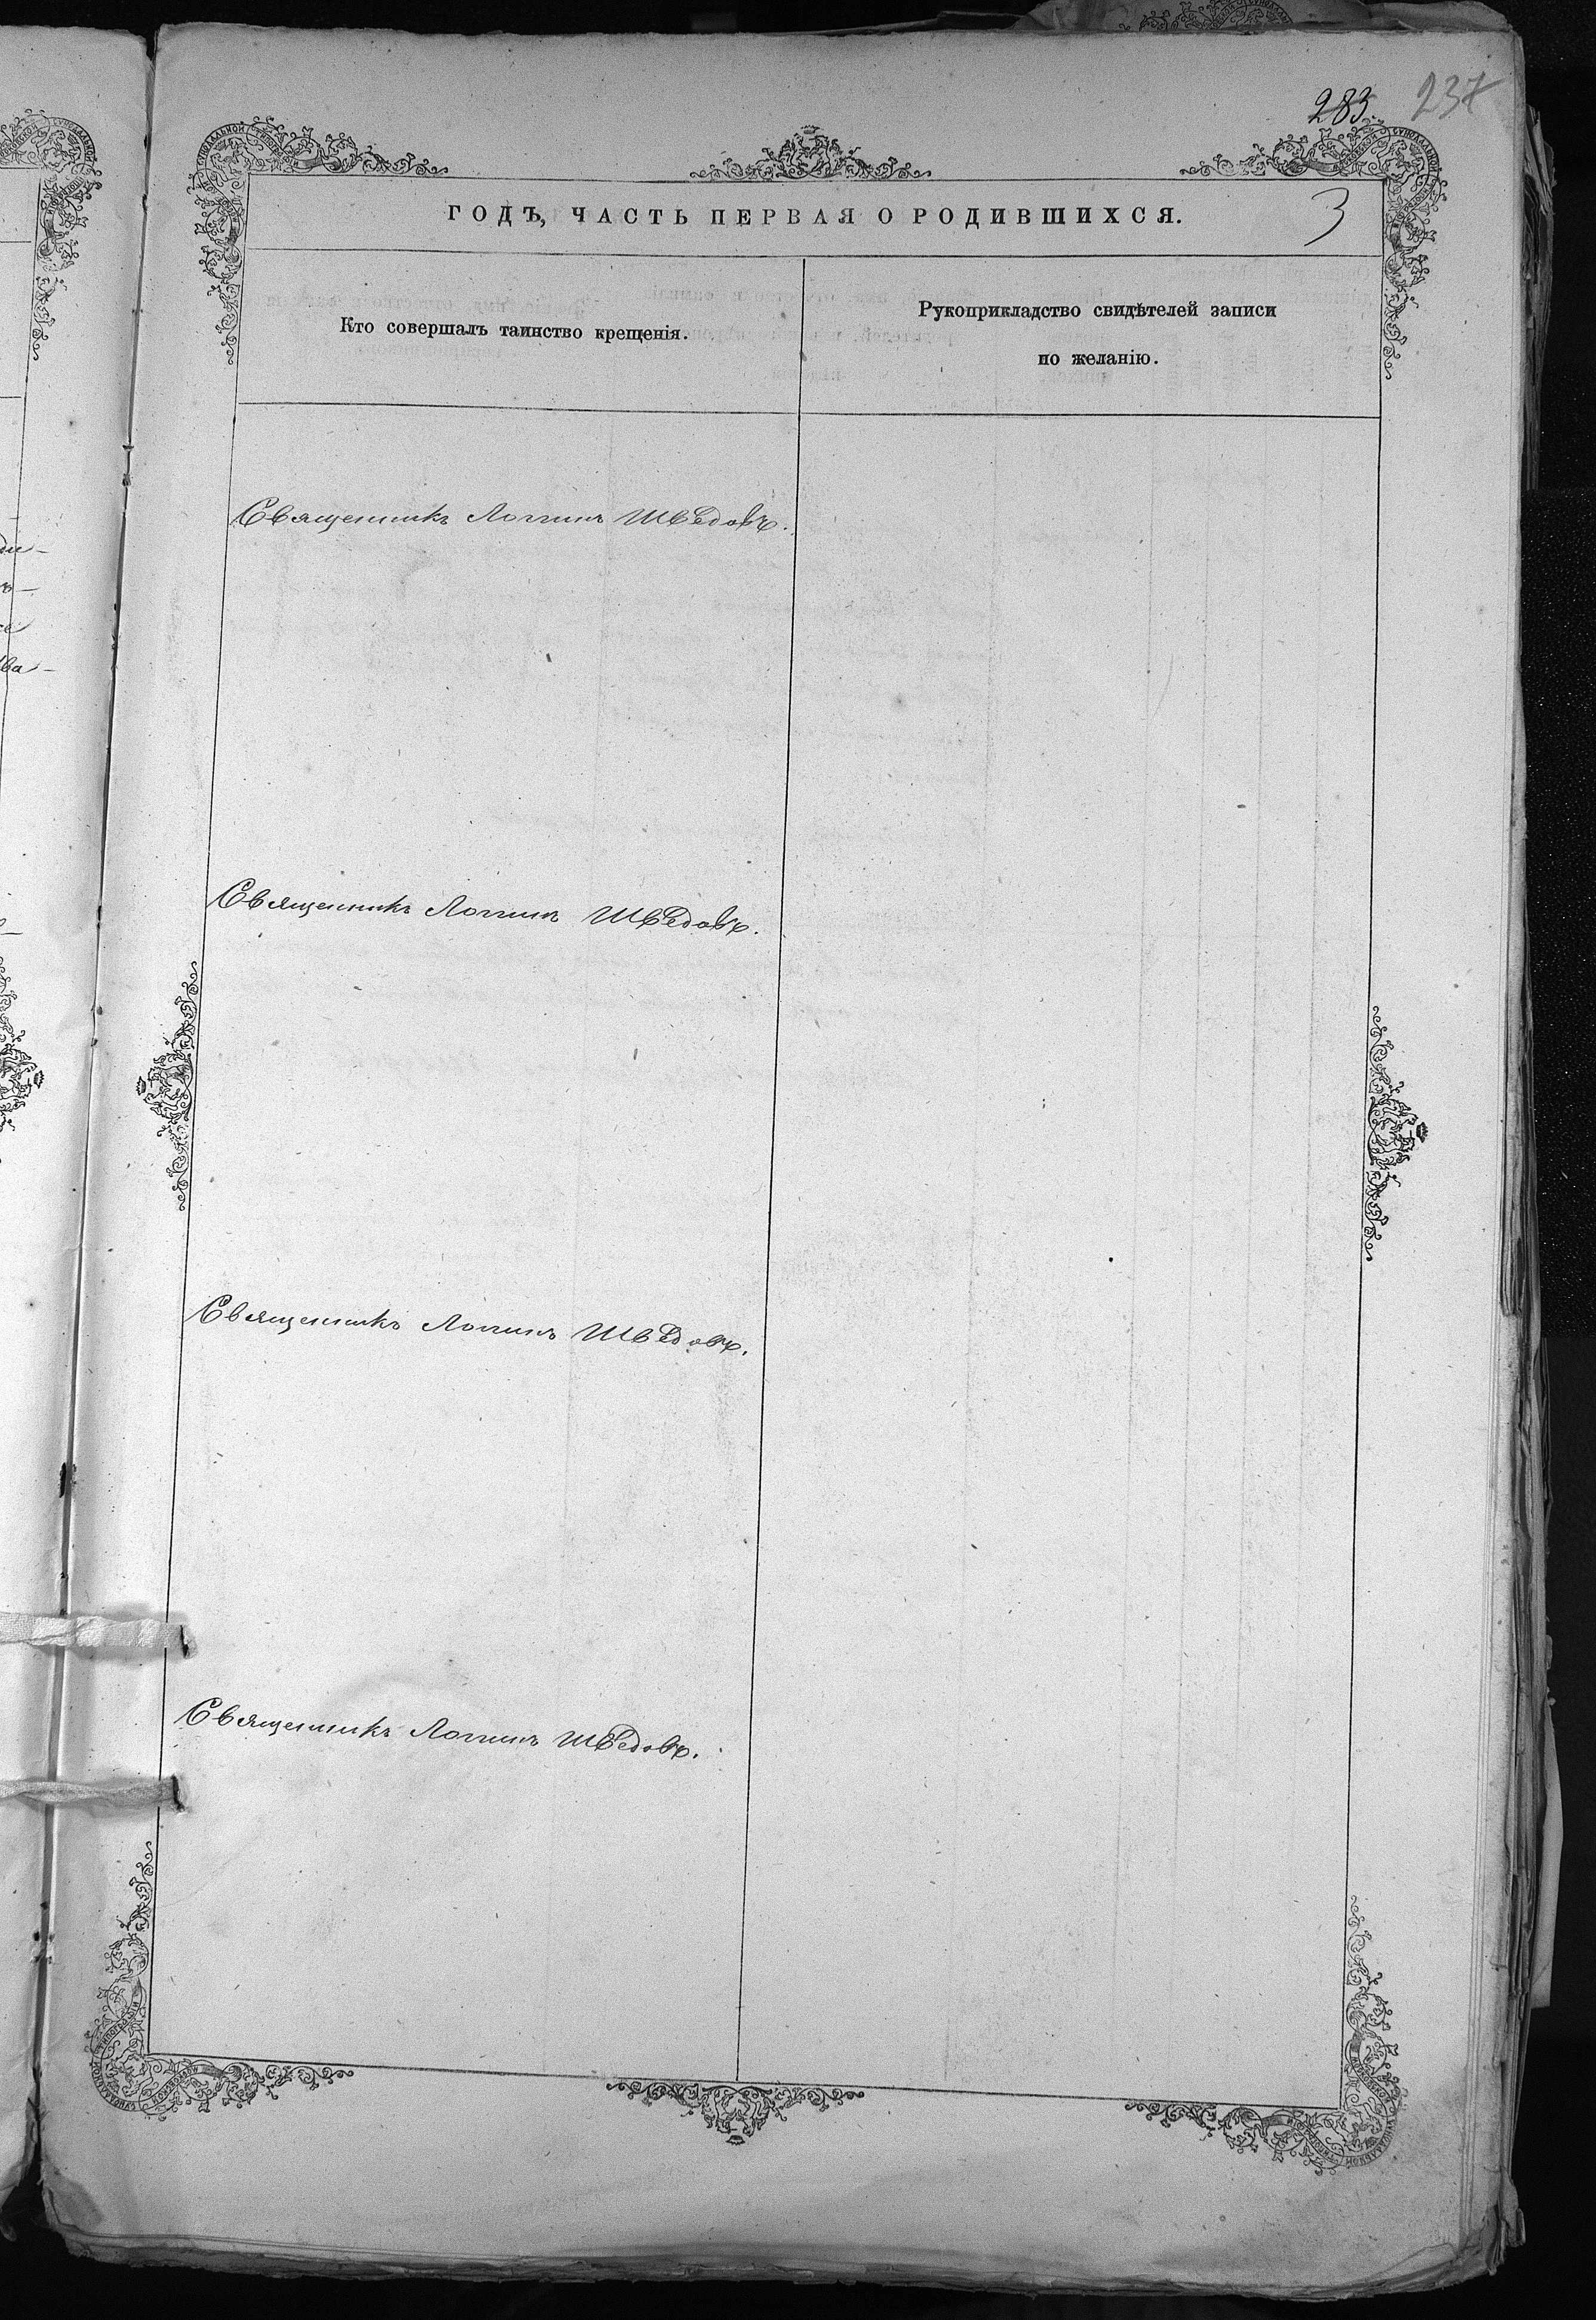 283.
237
ГОДЪ, ЧАСТЬ ПЕРВАЯ О РОДИВШИХСЯ.
3
Кто совершалъ таинство крещенія.
Рукоприкладство свидѣтелей записи
по желанію.
Священникъ Логгинъ Шведовъ.
Священникъ Логгинъ Шведовъ.
Священникъ Логгинъ Шведовъ.
Священникъ Логгинъ Шведовъ.